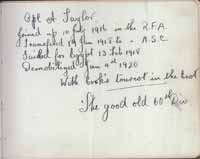 Cpl A Taylor
Joined up 10 July 1916 in the R.F.A.
Transfered 19 Jan 1918 to - A.S.C.
Sailed for Egypt 13 Feb 1918
Demobilized Jan 4th 1920
With Cook's tourist in the East
The good old 60th Div